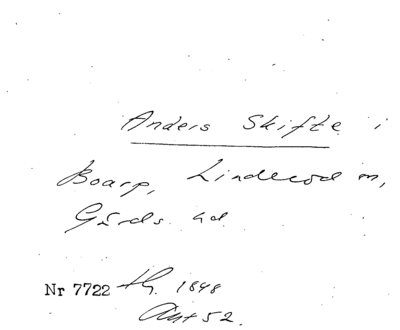 Anders Skifte i
Boarp, Linderöd sn,
Gärds hd.
Nr 7722 th. 1848
Ant 52.